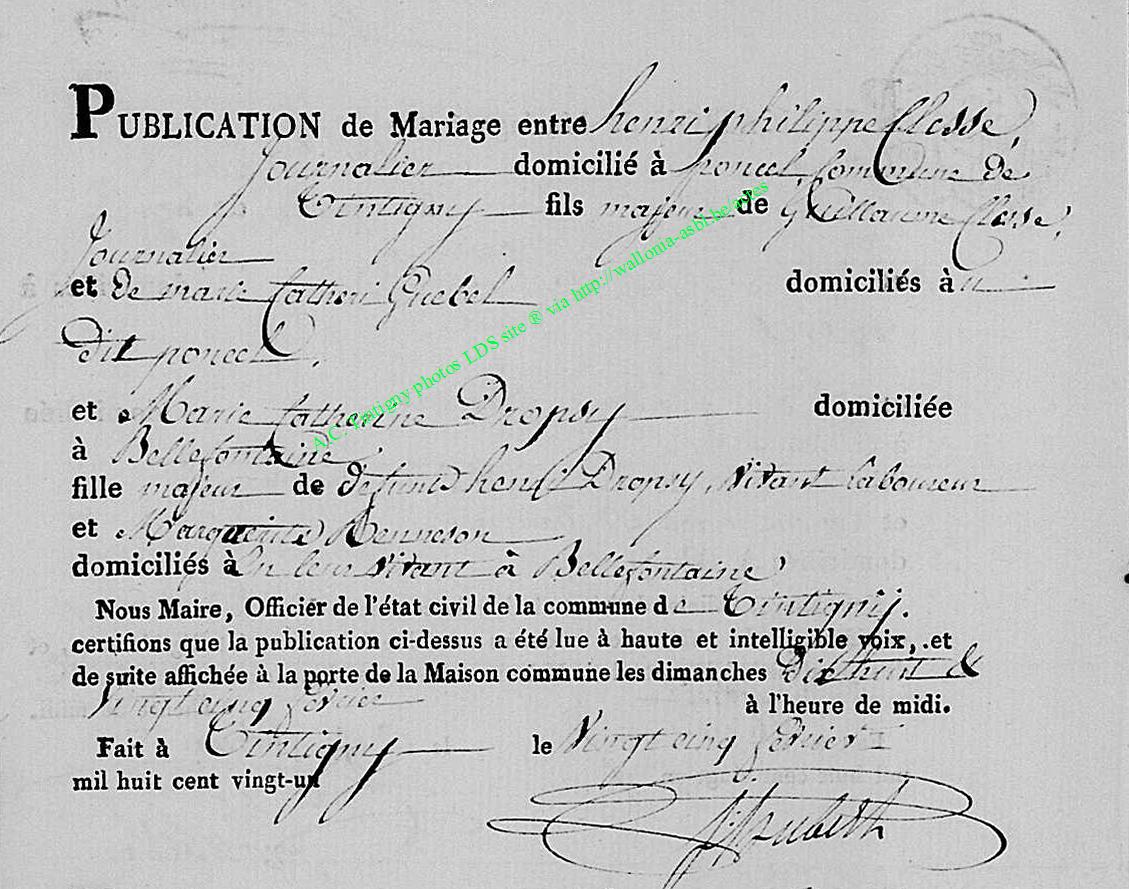 PUBLICATION de Mariage entre henri philippe Clesse,
Journalier domicilié à poncel, Commune de
Tintigny fils majeur de Guillaume Clesse,
Journalier
et de marie Catheri Guebel domiciliés à
dit poncel,
et Marie Catherine Dropsy domiciliée
à Bellefontaine
fille majeur de defunts henri Dropsy, vivant laboureur
et Marguerite Henneson
domiciliés à en leur vivant à Bellefontaine
Nous Maire, Officier de l'état civil de la commune de Tintigny.
certifions que la publication ci-dessus a été lue à haute et intelligible voix, et
de suite affichée à la porte de la Maison commune les dimanches dix huit &
vingt cinq fevrier à l'heure de midi.
Fait à Tintigny le vingt cinq fevrier
mil huit cent vingt-un
A.C. Tintigny photos LDS site ® via http://wallonia-asbl.be/actes